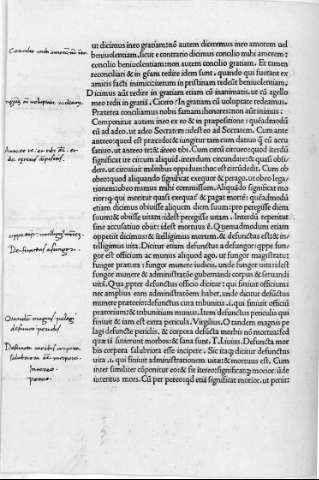 ut dicimus ineo gratiam: nõ autem dicere
beniuolentiam, sicut e contrario dicimus concilio mihi amorem:
concilio beniuolentiam: non autem concilio gratiam. Et tamen
reconciliari & in grãm redire idem sunt. quando qui fuerant ex
amicis facti inimici: iterum in pristinam redeũt beniuolentiam.
Dicimus aũt redire in gratiam etiam cũ inanimatis. ut cũ agello
meo redii in gratiã. Cicero: In gratiam cũ uoluptate redeamus.
Præterea conciliamus nobis famam: honorem: non animatis:
Componitur autem ineo ex eo & in præpositione: quẽadmodũ
cũ ad adeo. ut adeo Socratem: idest eo ad Socratem. Cum ante
anteeo: quod est præcedo: & iungitur tam cum datiuo
ut anteeo te: & anteeo tibi. Cum circũ circueo: quod iterdũ
significat ire circum aliquid. interdum circundare: & quasi obsidere.
ut circuiuit milites oppidum: hoc est circũdedit. Cum ob
obeo: quod aliquando significat exequor & perago. ut obeo legationem:
obeo munus mihi commissum. Aliquãdo significat morior:
etiam dicimus obiuisse aliquem diem suum: pro peregisse diem
suum: & obiisse uitam: idest peregisse uitam. Interdũ reperitur
sine accusatiuo obiit: idest mortuus ẽ. Quemadmodum etiam
oppetiit dicimus: & itelligimus mortem. & defunctus est: & intelligimus
uita. Dicitur etiam defunctus a defungor: qppe fungor
est officium ac munus aliquod ago. ut fungor magistratu:
fungor prætura: fungor munere iudicis. unde fungor uita: idest
fungor munere & administratõe gubernandi corpus & fruendi
uita. Quapropter defunctus officio dicitur: qui finiuit officium:
nec amplius eam administratiõem habet. unde dicitur defũctus
munere prætorie: & functus cura tribunitia .i. qui finiuit officiũ
prætorium: & tribunitium munus. Item defunctus periculis qui
finiuit & iam est extra pericula. Virgilius. O tandem magnis pelagi
defuncte periclis. & corpora defuncta morbis nõ mortua: sed
quæ iã finierunt morbos: & sana sunt. T. Liuius. Defuncta morbis
corpora salubriora esse incipere. Sic itaq; dicitur defunctus
uita .i. qui finiuit administrationem uitæ: & mortuus est. Cum
inter similiter cõponitur eo: & fit itereo: significatq; morior: ũde
interitus mors. Cũ per pereo: qd etiã significat morior. ut periit:
Defunctus
O tandem magnis pelagi
defuncte periclis
Defuncta morbis corpora
salubriora
Intereo
pereo